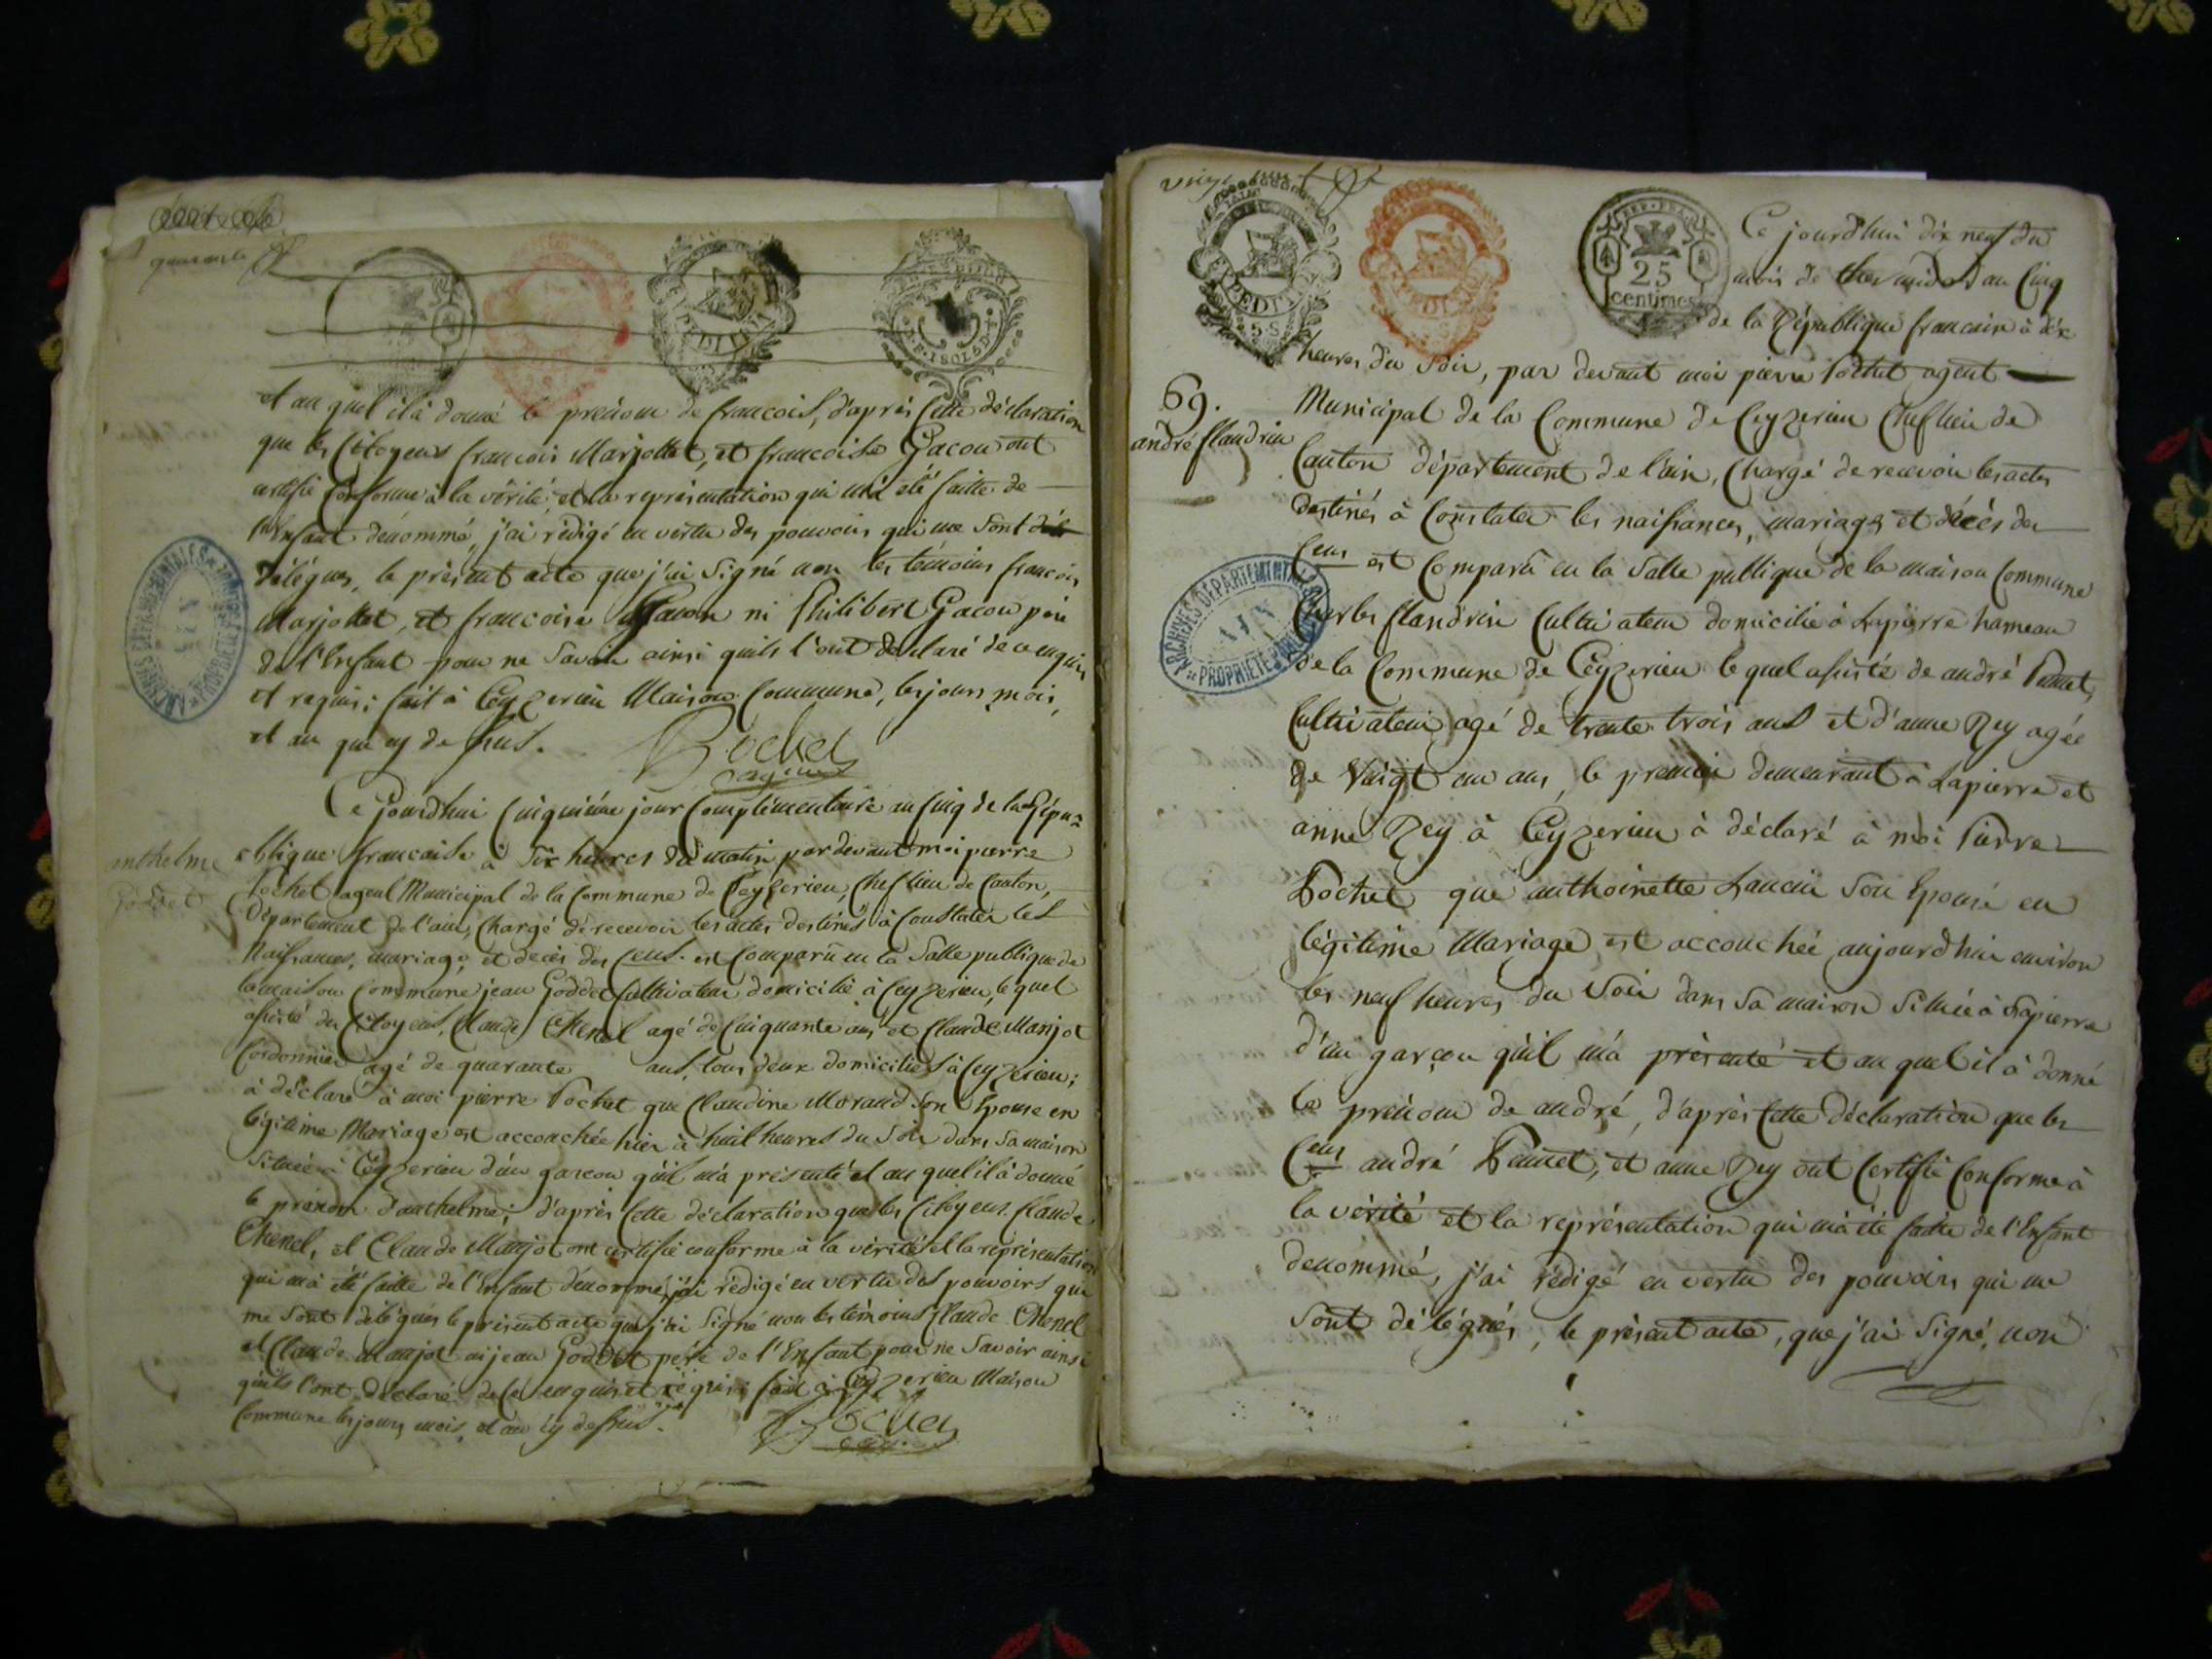 quarante
et au quel il à donné le prénom de francois, d'après Cette déclaration
que les Citoyens francois Marjollet, et francoise Gacon ont
certifié Conforme à la vérité, et la représentation qui m'a été faitte de
l'Enfant dénommé, j'ai rédigé en vertu des pouvoirs qui me sont
délégues, le présent acte que j'ai Signé non les témoins francois
Marjollet, et francoise Gacon ni Philibert Gacon père
de l'Enfant pour ne Savoir ainsi quils l'ont déclaré de ce enquis
et requis; fait à Ceyzerieu Maison Commune, les jours mois,
et an que cy dessus.
Pochet
agent
Ce jourdhui Cinquiéme jour Complémentaire an Cinq de la Répu=
anthelme
=blique francaise à six heures du matin par devant moi pierre
Goddet
Pochet agent Municipal de la Commune de Ceyzerieu, Chef lieu de Canton,
Département de l'ain, Chargé de recevoir les actes destinés à Constater les
Naissances, mariage, et décès des Cens. est Comparû en la Salle publique de
la maison Commune jean Goddet Cultivateur domicilié à Ceyzerieu, lequel
assisté des Citoyens, Claude Chenel agé de Cinquante ans, et Claude Manjot
Cordonnier agé de quarante ans, tous deux domiciliés à Ceyzerieu;
à déclaré à moi pierre Pochet que Claudine Morand Son Epouse en
légitime Mariage est accouchée hier à huit heures du Soir dans Sa maison
Située à Ceyzerieu d'un garcon quil m'a présenté et au quel il à donné
le prénom d'anthelme; d'après Cette déclaration que les Citoyens Claude
Chenel, et Claude Manjot ont certifié conforme à la vérité et la représentation
qui m'a été faitte de l'Enfant dénommé, j'ai rédigé en vertu des pouvoirs qui
me Sont délégués le présent acte que j'ai Signé non les témoins Claude Chenel
et Claude Manjot ni jean Goddet père de l'Enfant pour ne Savoir ainsi
quils l'ont déclaré de ce enquis et requis; fait à Ceyzerieu Maison
Commune les jours mois, et an cy dessus.
Pochet
agent
ARCHIVES DEPARTEMENTALES
PROPRIETE PUBLIQUE
25
centimes
Ce jourd'hui dix neuf du
mois de thermidor an Cinq
de la République francaise à dix
heures du Soir, par devant moi pierre Pochet agent
69.
Municipal de la Commune de Ceyzerieu Chef lieu de
andré flandrin
Canton département de l'ain, Chargé de recevoir les actes
destinés à Constater les naissances, mariages et décès des
Cens est Comparû en la Salle publique de la maison Commune
Charles flandrin Cultivateur domicilié à Lapierre hameau
de la Commune de Ceyzerieu le quel assisté de andré
Cultivateur agé de trente trois ans et d'anne Rey agée
de Vingt un ans, le premier demeurant à Lapierre et
anne Rey à Ceyzerieu à déclaré à moi Pierre
Pochet que anthoinette Son Epouse en
légitime Mariage est accouchée aujourdhui environ
les neuf heures du Soir dans Sa maison Située à Lapierre
d'un garçon qu'il m'a présenté et au quel il à donné
le prénom de andré, d'après Cette déclaration que les
Cens andré et anne Rey ont Certifié Conforme à
la vérité et la représentation qui m'a été faitte de l'Enfant
denommé, j'ai rédigé en vertu des pouvoirs qui me
Sont délégués, le présent acte, que j'ai Signé, non
ARCHIVES DEPARTEMENTALES
AIN
PROPRIETE PUBLIQUE